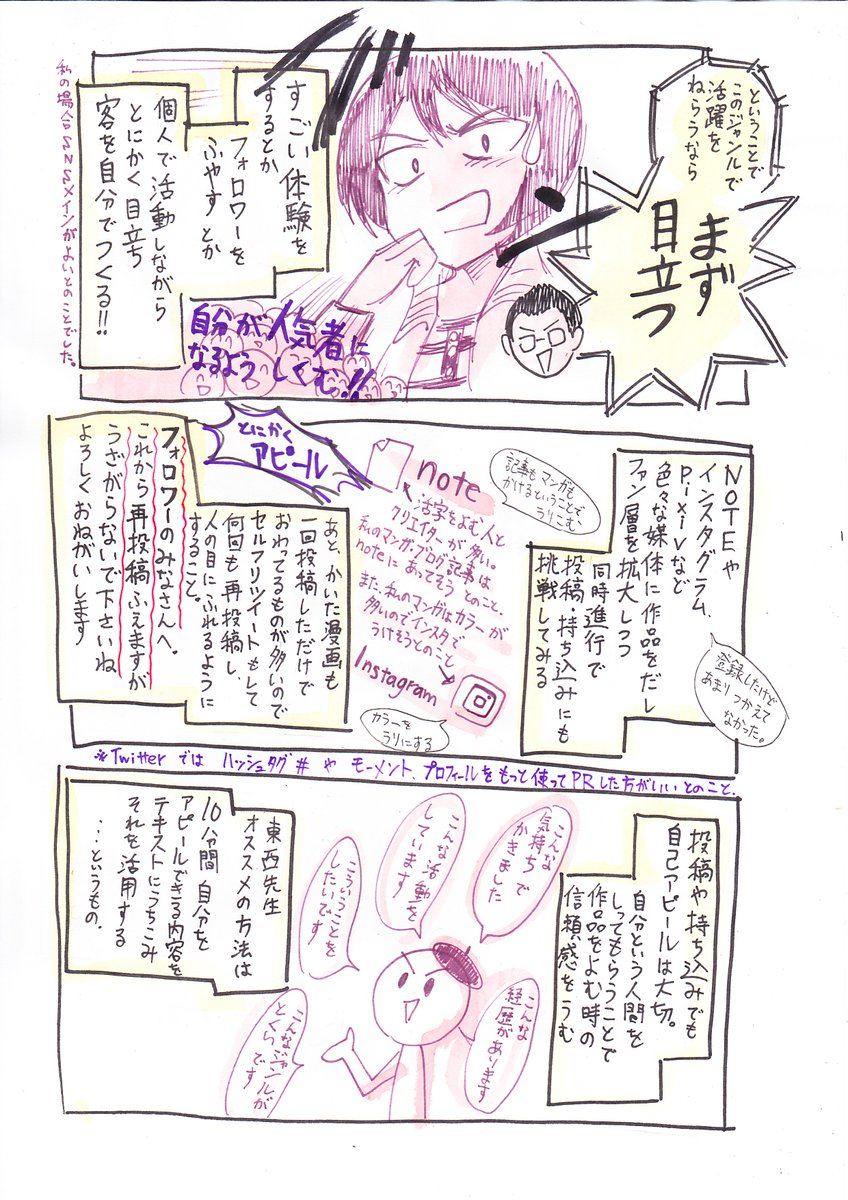 ということで
このジャンルで
活躍を
ねらうなら
まず
目立つ
すごい体験を
するとか
フォロワーを
ふやすとか
個人で活動しながら
とにかく目立ち
客を自分でつくる!!
自分が人気者に
なるよう しくむ!!
私の場合SNSメインがよいとのことでした。
NOTEや
インスタグラム、
Pixivなど
色々な媒体に作品をだし
ファン層を拡大しつつ
同時進行で
投稿・持ち込みにも
挑戦してみる
登録したけど
あまりつかえて
なかった。
記事もマンガも
かけるということで
うりこむ
note
活字をよむ人と
クリエイターが多い。
私のマンガ・ブログ記事は
noteにあってそう とのこと。
また、私のマンガはカラーが
多いのでインスタで
うけそうとのこと
Instagram
カラーを
うりにする
とにかく
アピール
あと、かいた漫画も
一回投稿しただけで
おわってるものが多いので
セルフリツイートもして
何回も再投稿し、
人の目にふれるように
すること。
フォロワーのみなさんへ。
これから再投稿ふえますが
うざがらないで下さいね
よろしくおねがいします
※Twitterでは ハッシュタグ#や モーメント、プロフィールをもっと使ってPRした方がいいとのこと.
投稿や持ち込みでも
自己アピールは大切。
自分という人間を
しってもらうことで
作品をよむ時の
信頼感をうむ
こんな
気持ちで
かきました
こんな活動を
しています
こういうことを
したいです
こんな
経歴があります
こんなジャンルが
とくいです
東西先生
オススメの方法は
10分間 自分を
アピールできる内容を
テキストにうちこみ
それを活用する
…というもの.